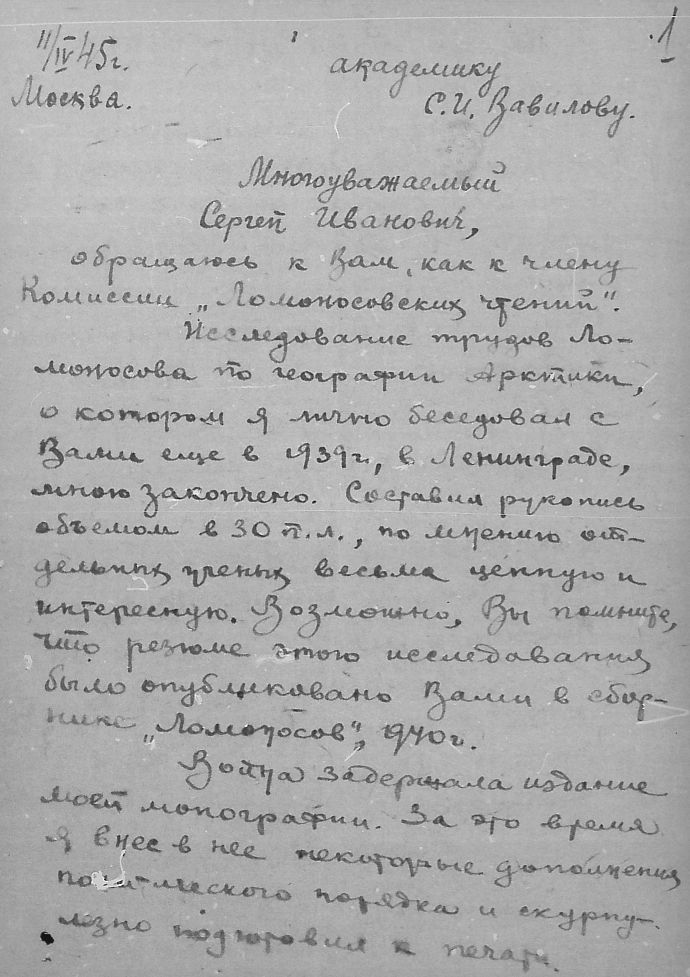 1
11/IV 45г.
академику
Москва.
С.И. Вавилову.
Многоуважаемый
Сергей Иванович,
обращаюсь к Вам, как к члену
Комиссии „Ломоносовских чтений".
Исследование трудов Ло-
моносова по географии Арктики,
о котором я лично беседовал с
Вами еще в 1939г., в Ленинграде,
мною закончено. Составил рукопись
объемом в 30 п.л., по мнению от-
дельных ученых весьма ценную и
интересную. Возможно, Вы помните,
что резюме этого исследования
было опубликовано Вами в сбор-
нике „Ломоносов", 1940г.
Война задержала издание
моей монографии. За это время
я внес в нее некоторые дополнения
политического порядка и скурпу-
лезно подготовил к печати.